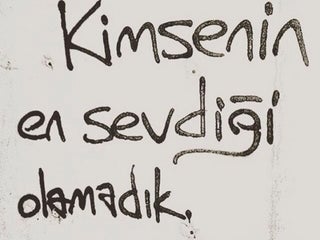 Kimsenin
en sevdiği
olamadık.